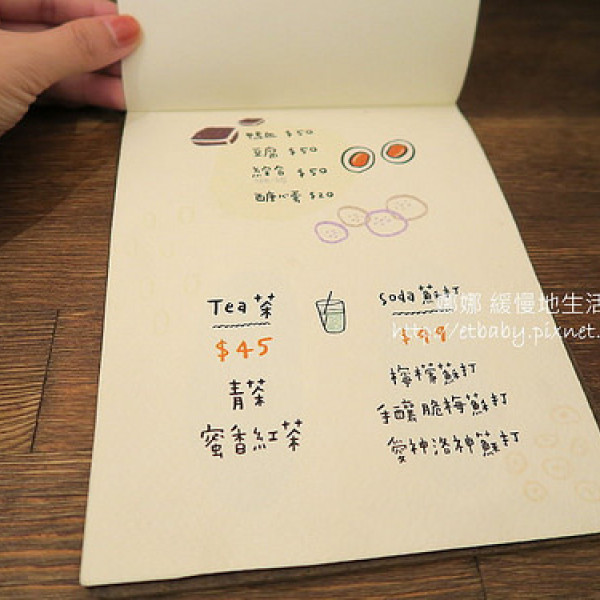 鴨血 $50
豆腐 $50
綜合 $50
糖心蛋 $20
Tea 茶
$45
青茶
蜜香紅茶
soda 蘇打
$99
檸檬蘇打
手釀脆梅蘇打
愛神洛神蘇打
娜娜 緩慢地生活
http://etbaby.pixnet.